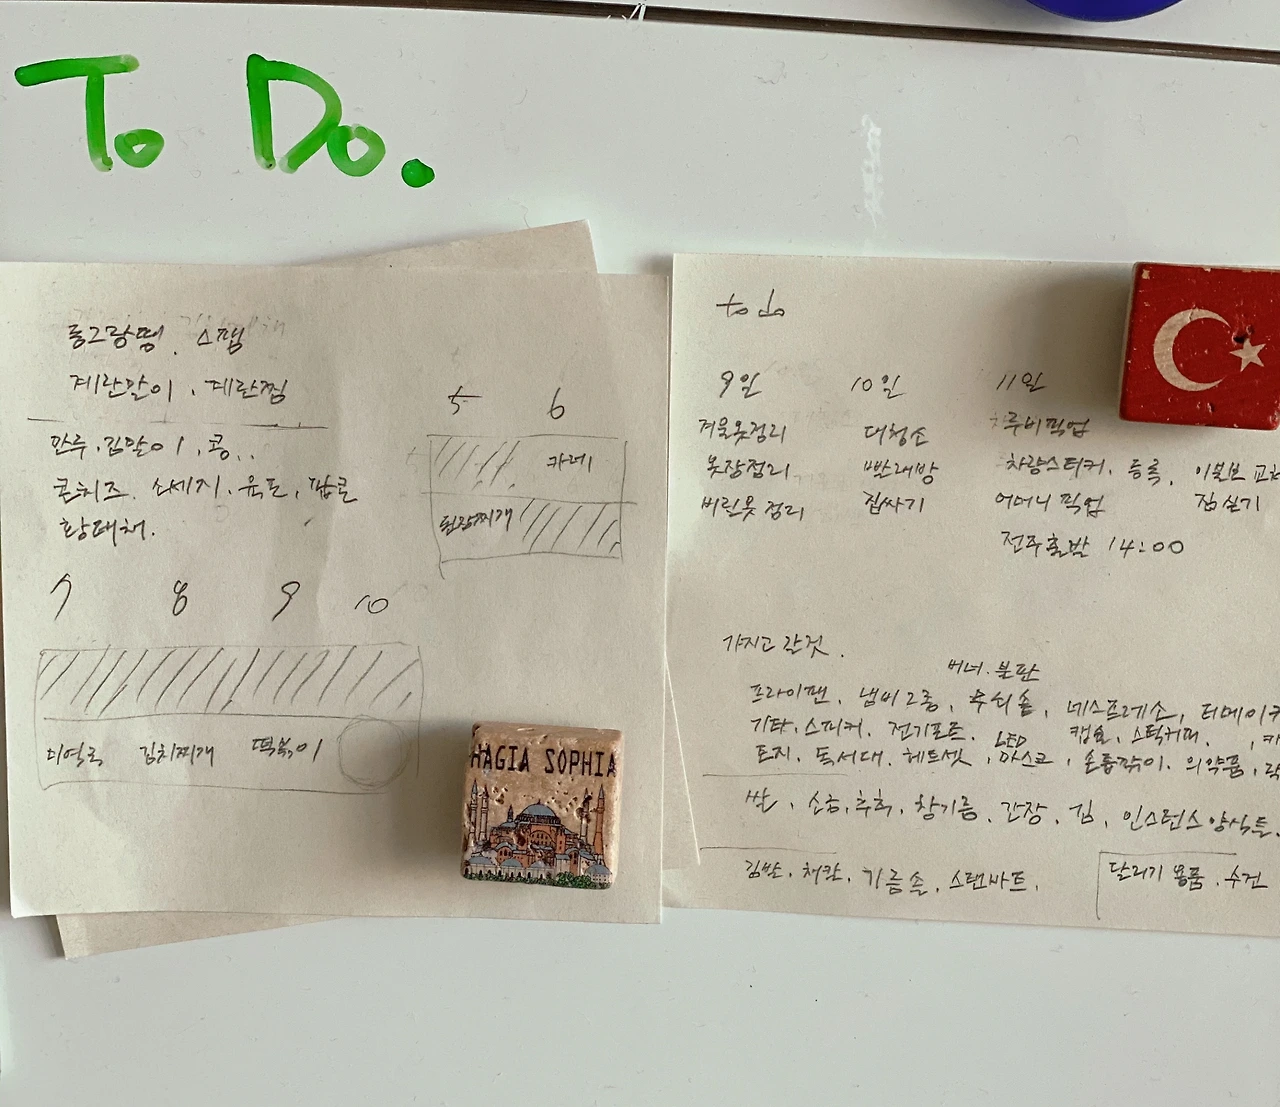 To Do.
동그랑땡. 스팸
계란말이, 계란찜
만두, 김말이, 콩..
콘치즈. 소세지. 육포, 팝콘
황태채.
5 6
카레
된장찌개
7 8 9 10
미역국 김치찌개 떡볶이
HAGIA SOPHIA
to do
9일 10일 11일
겨울옷정리 대청소 루비픽업
옷장정리 빨래방 차량스티커. 등록,
버린옷 정리 짐싸기 어머니 픽업 짐싣기
전주출발 14:00
가지고 갈것.
버너. 불판
프라이팬, 냄비2종, 무쇠솥, 네스프레소,
기타, 스피커. 전기포트. 캡슐, 스틱커피.
LED
독서대. 헤드셋, 마스크, 손톱깎이. 의약품,
쌀, 소금, 후추, 참기름, 간장, 김, 인스턴스양식들.
김발, 채칼, 기름솔, 스텐바트.
달리기 용품, 수건